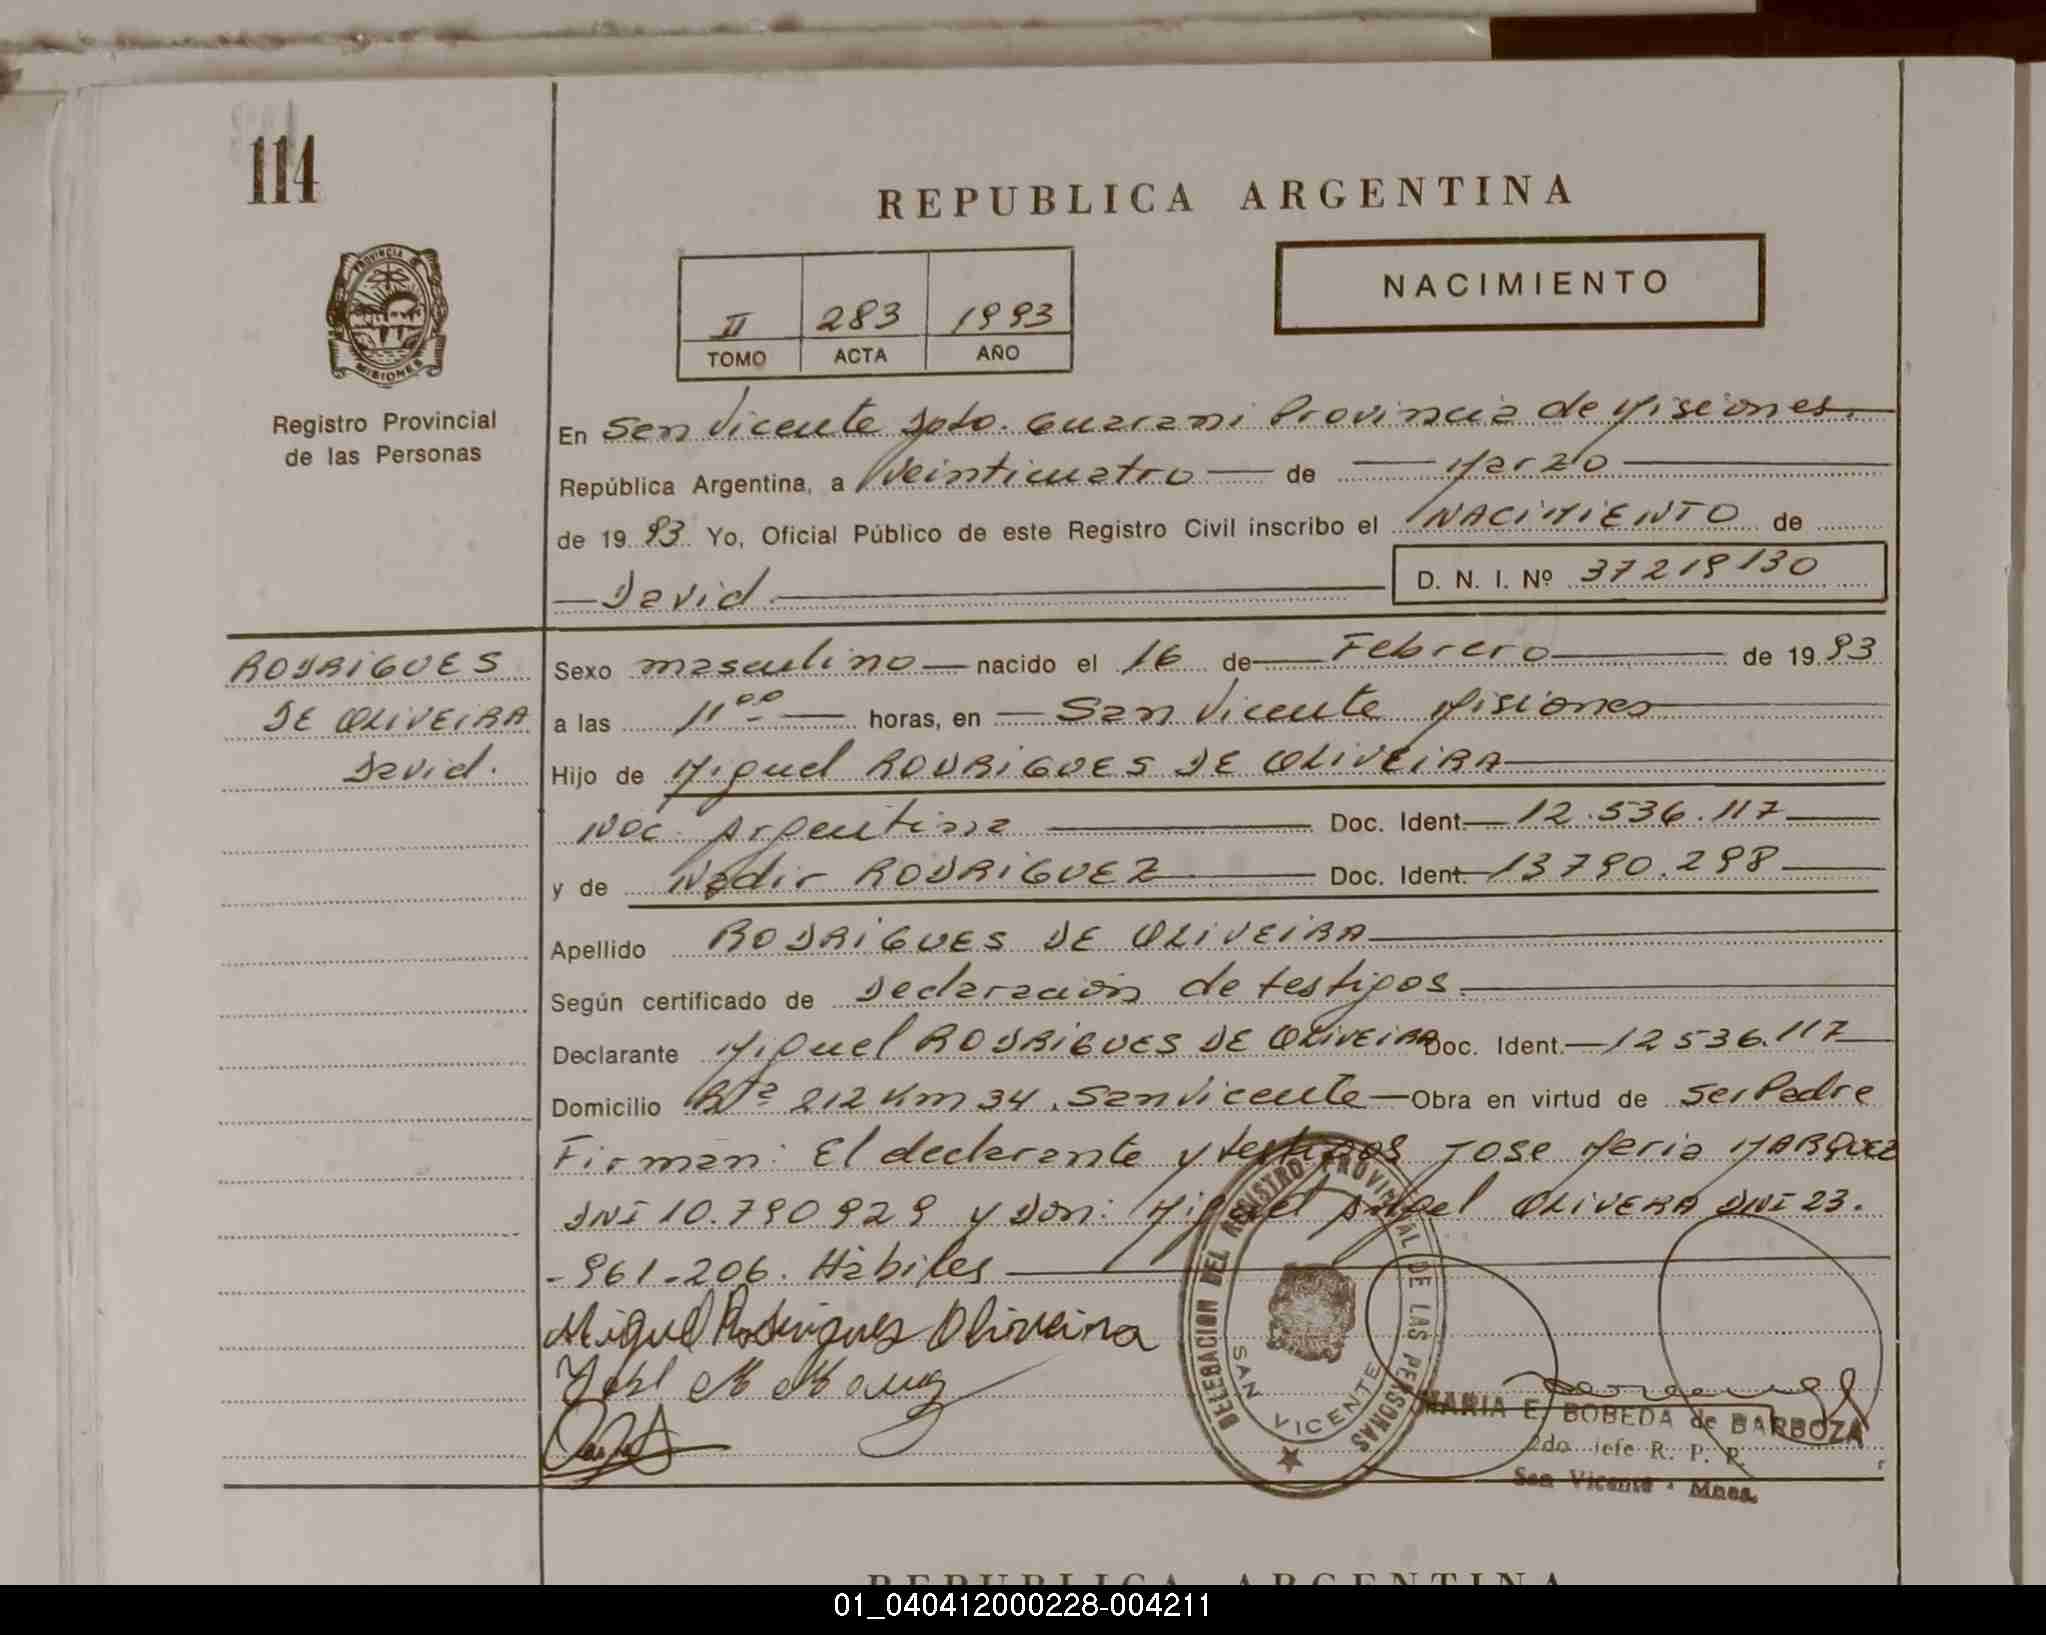 114
REPUBLICA ARGENTINA
PROVINCIA DE
MISIONES
Registro Provincial
de las Personas
II 283 1993
TOMO ACTA AÑO
NACIMIENTO
En San Vicente Dpto. Guarani Provincia de Misiones.
República Argentina, a Veinticuatro de Marzo
de 1993 Yo, Oficial Público de este Registro Civil inscribo el NACIMIENTO de
David D. N. I. Nº 37219130
RODRIGUES
DE OLIVEIRA
David.
Sexo masculino nacido el 16 de Febrero de 1993
a las 11 00 horas, en San Vicente Misiones
Hijo de Miguel RODRIGUES DE OLIVEIRA
Nac. Argentina Doc. Ident. 12.536.117
y de Nadir RODRIGUEZ Doc. Ident. 13790.298
Apellido RODRIGUES DE OLIVEIRA
Según certificado de Declaración de testigos.
Declarante Miguel RODRIGUES DE OLIVEIRA Doc. Ident. 12536.117
Domicilio Rta 212 Km 34. San Vicente Obra en virtud de Ser Padre
Firman: El declarante y testigos Jose Maria MARQUEZ
DNI 10.790929 y Don: Miguel Angel OLIVERA DNI 23.
-961-206. Hábiles
Miguel Rodrigues Oliveira
DELEGACION DEL REGISTRO PROVINCIAL DE LAS PERSONAS
SAN VICENTE
MARIA E. BOBEDA de BARBOZA
2do. Jefe R. P. P.
San Vicente - Mnes.
REPUBLICA ARGENTINA
01_040412000228-004211